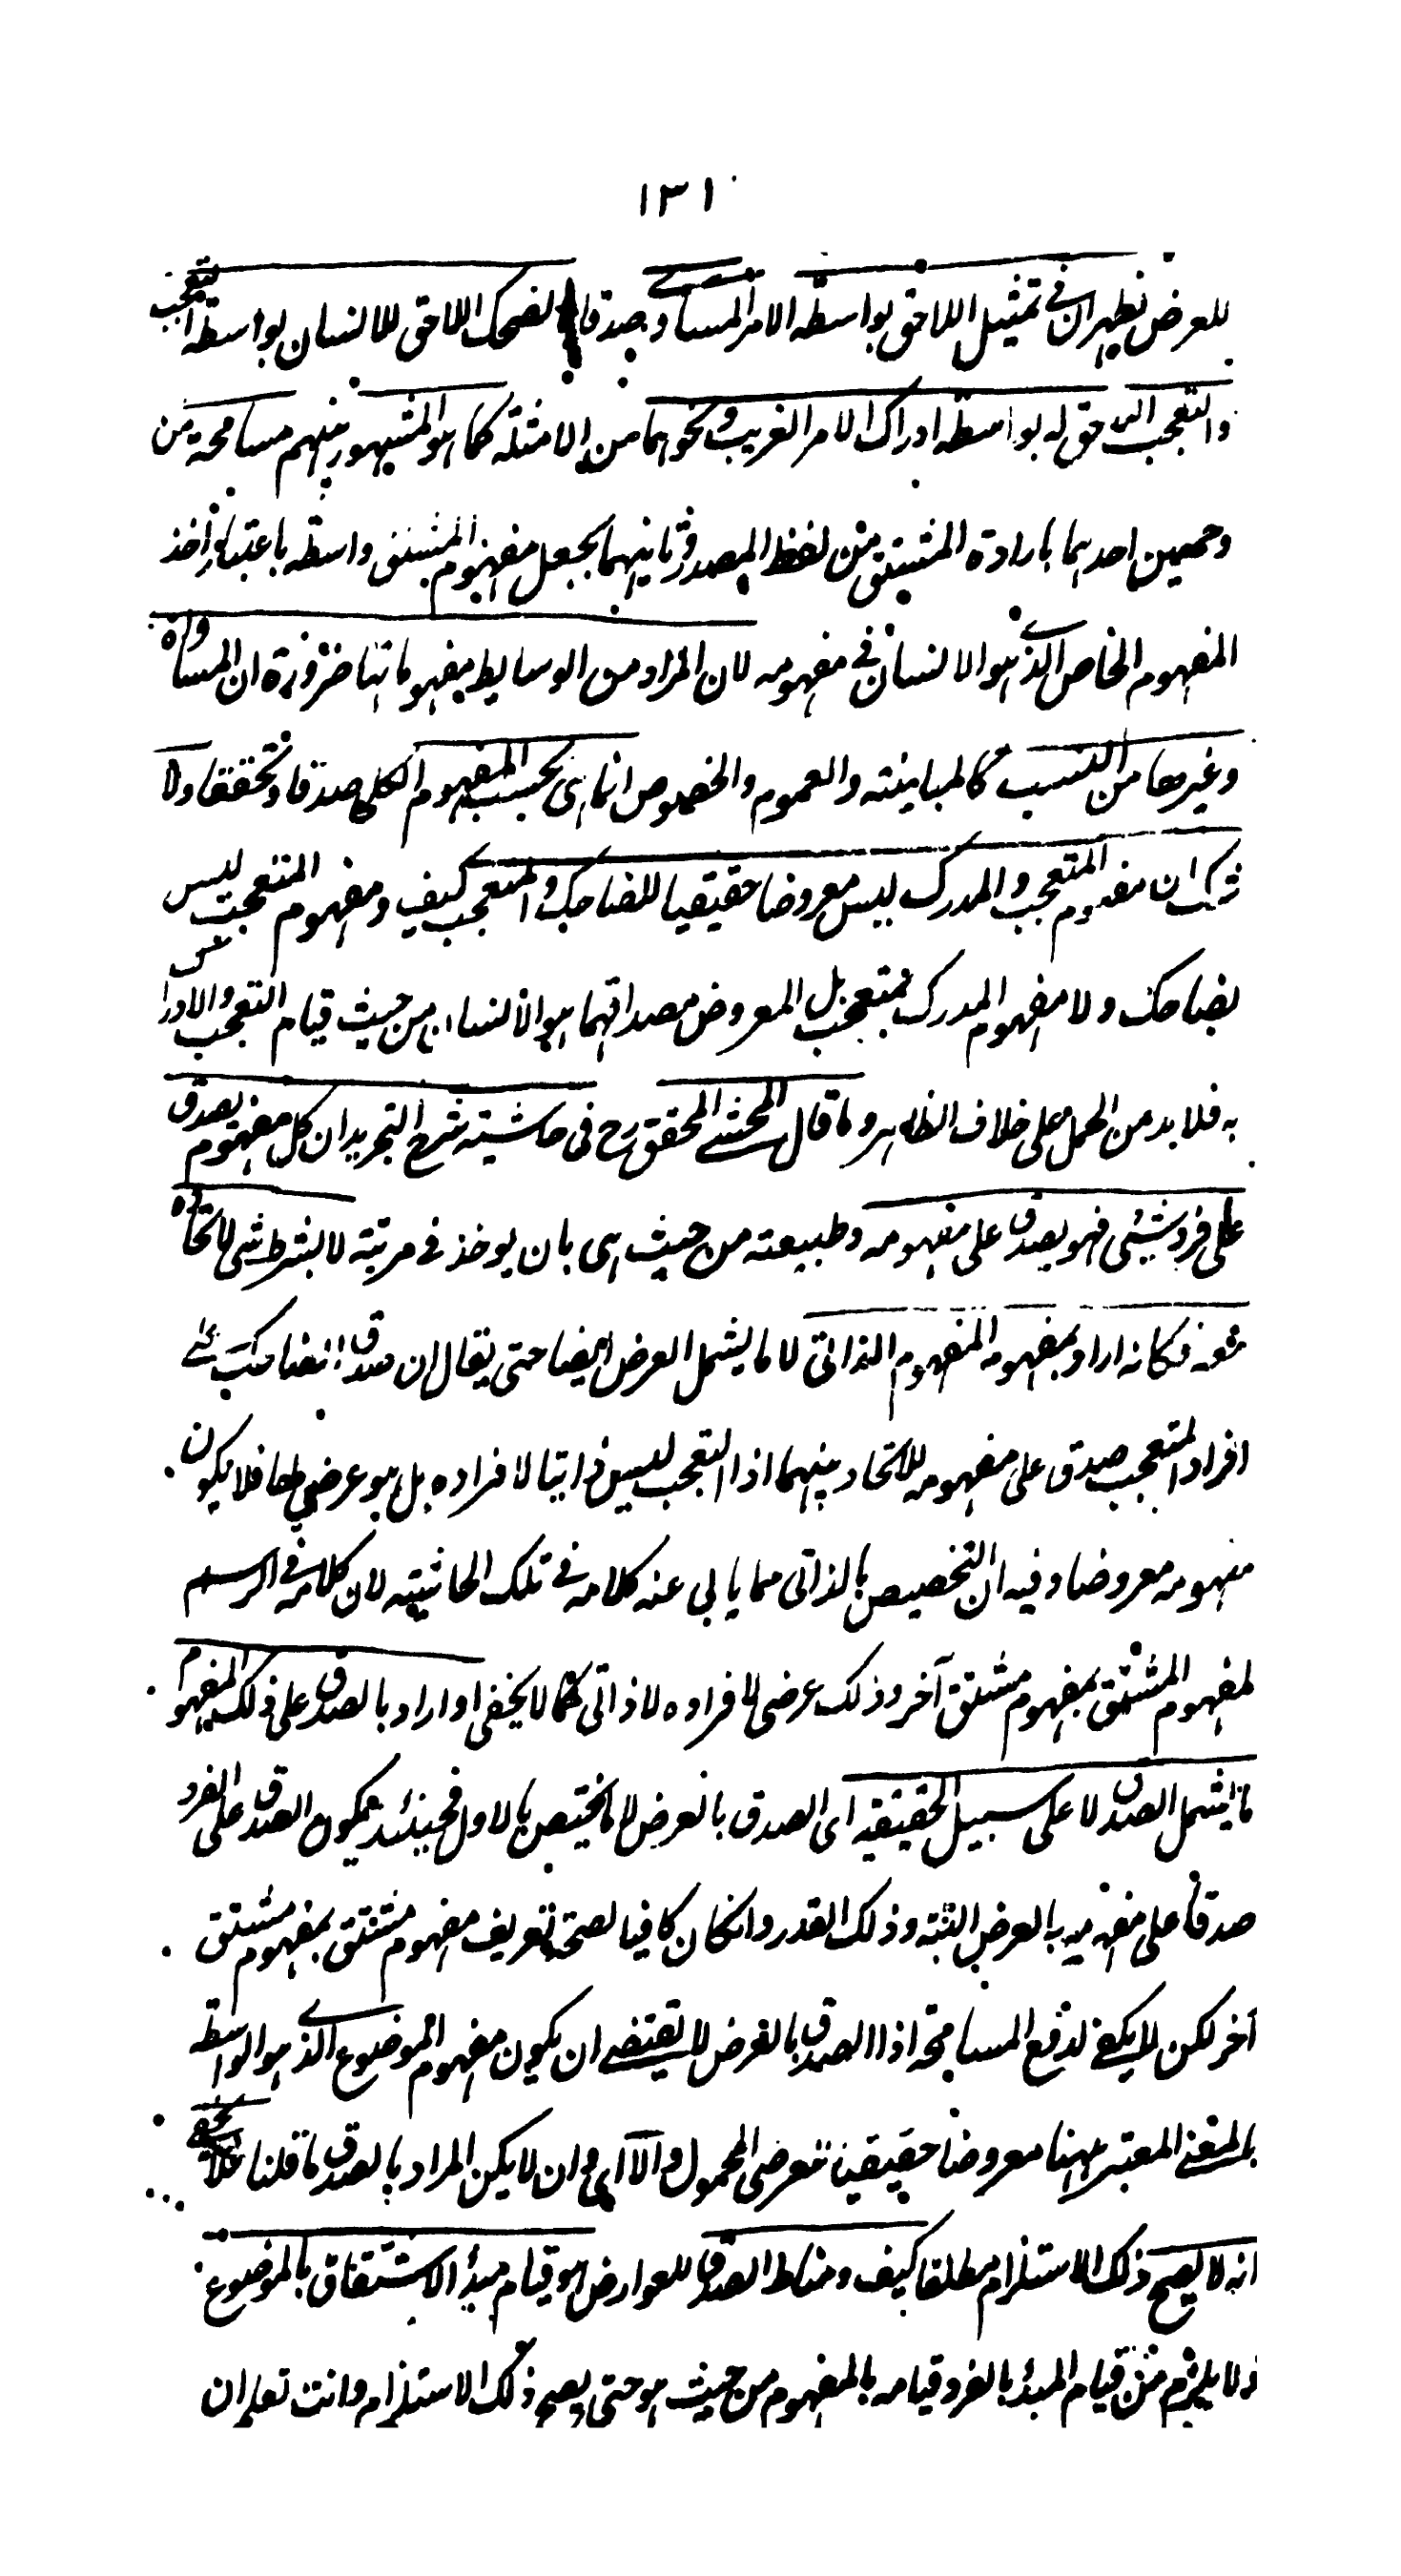 ١٣١
للعرض نظير ان في تمثيل اللاحق بواسطه الامر المساوي صدقا لضحك اللاحق للانسان بواسطة التعجب
والتعجب اللاحق له بواسطه ادراك الامر الغريب ونحوهما من الامثلة كما هو المشهور بينهم مسامحة من
وجهين احدهما بارادة المشتق من لفظ المصدر وثانيهما بجعل مفهوم المشتق واسطه باعتبار اخذ
المفهوم الخاص الذي هو الانسان في مفهومه لان المراد من الوسايط مفهوماتها ضرورة ان المساواة
وغيرها من النسب كالمباينة والعموم والخصوص انما هي بحسب المفهوم الكلي صدقا وتحققا ولا
شك ان مفهوم المتعجب والمدرك ليس معروضا حقيقيا للضاحك والمتعجب كيف ومفهوم المتعجب ليس
بضاحك ولا مفهوم المدرك بمتعجب بل المعروض مصداقهما هو الانسان من حيث قيام التعجب والادراك
به فلا بد من الحمل على خلاف الظاهر وما قال المحشي المحقق رح في حاشيته شرح التجريد ان كل مفهوم يصدق
على فرد شيئ فهو يصدق على مفهومه وطبيعته من حيث هي بان يوخذ في مرتبة لا بشرط شي لاتحاده
معه فكانه اراد بمفهومه المفهوم الذاتي لا ما يشمل العرض ايضا حتى يقال ان صدق الضاحك على
افراد المتعجب صدق على مفهومه للاتحاد بينهما اذ التعجب ليس ذاتيا لافراده بل هو عرضي لها فلا يكون
مفهومه معروضا وفيه ان التخصيص بالذاتي مما يابى عنه كلامه في تلك الحاشيته لان كلامه في الرسم
لمفهوم المشتق بمفهوم مشتق آخر وذلك عرضى لافراده لا ذاتي كما لا يخفى او اراد بالصدق على ذلك المفهوم
ما يشمل الصدق لا على سبيل الحقيقيه اى الصدق بالعرض لا ما يختص بالاول فحينئذ يكون الصدق على الفرد
صدقا على مفهومه بالعرض البتة وذلك القدر وانكان كافيا لصحة تعريف مفهوم مشتق بمفهوم مشتق
آخر لكن لا يكفي لدفع المسامحة اذ الصدق بالعرض لا يقتضي ان يكون مفهوم الموضوع الذي هو الواسطه
بالمعنى المعتبر ههنا معروضا حقيقيا لعرضى المحمول والا اى وان لا يكن المراد بالصدق ما قلنا فلا يخفى
انه لا يصح ذلك الاستلزام مطلقا كيف ومناط الصدق للعوارض هو قيام مبدأ الاشتقاق بالموضوع
ولا يلزم من قيام المبدأ بالفرد قيامه بالمفهوم من حيث هو حتى يصح ذلك الاستلزام وانت تعلم ان